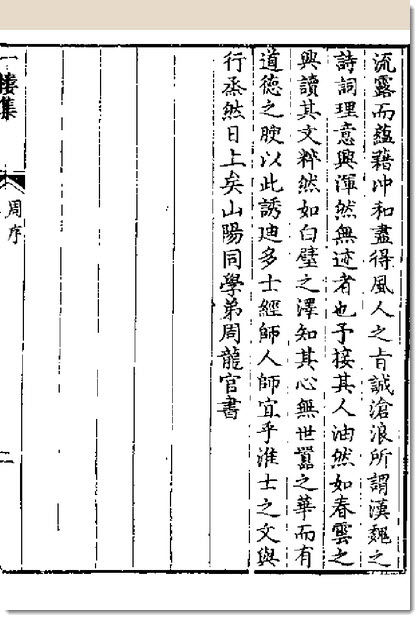 流露而蘊藉冲和盡得風人之旨誠滄浪所謂漢魏之
詩詞理意興渾然無迹者也予接其人油然如春雲之
興讀其文粹然如白璧之澤知其心無世囂之華而有
道德之腴以此誘迪多士經師人師宜乎淮士之文與
行烝然日上矣山陽同學弟周龍官書
一樓集
周序
二